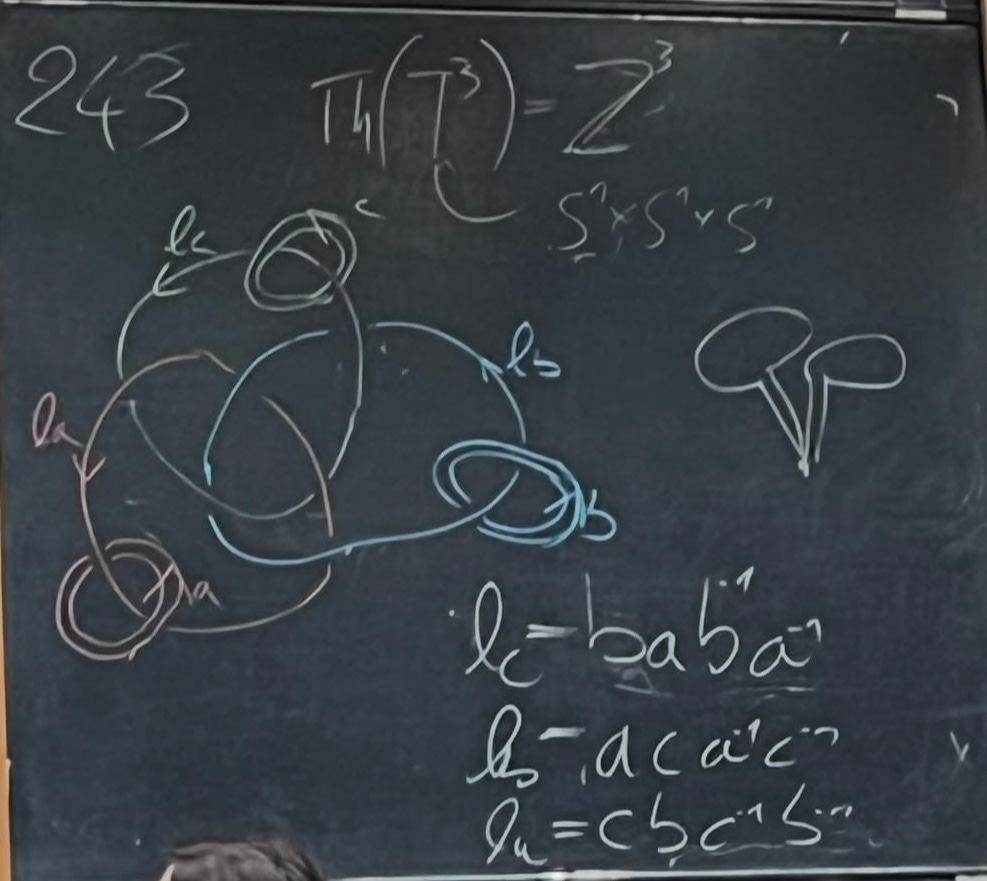 243 π₁(T³) = Z³
S¹×S¹×S¹
lc
c
lb
la
b
a
lc = bab⁻¹a⁻¹
lb = aca⁻¹c⁻¹
la = cbc⁻¹b⁻¹